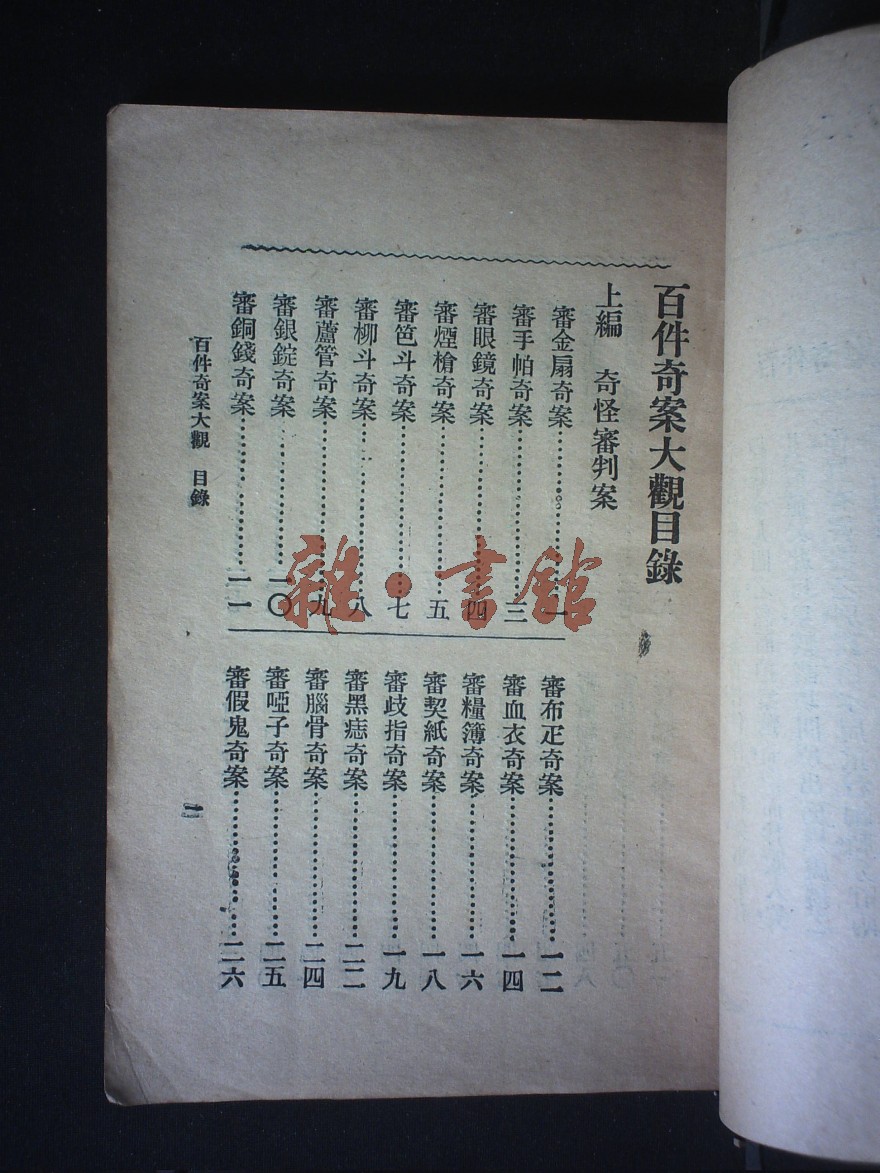 百件奇案大觀目錄
上編　奇怪審判案
審金扇奇案…………一
審手帕奇案…………三
審眼鏡奇案…………四
審煙槍奇案…………五
審笆斗奇案…………七
審柳斗奇案…………八
審蘆管奇案…………九
審銀錠奇案…………一〇
審銅錢奇案…………一一
審布疋奇案…………一二
審血衣奇案…………一四
審糧簿奇案…………一六
審契紙奇案…………一八
審歧指奇案…………一九
審黑痣奇案…………二二
審腦骨奇案…………二四
審啞子奇案…………二五
審假鬼奇案…………二六
百件奇案大觀　目錄
雜·書館